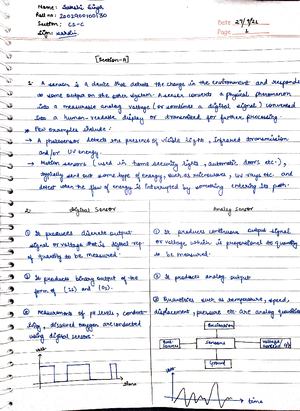 Name: Sakshi Singh
Roll no: 2002900100130
Section: CS-C
Sign: Sakshi
Date 27/9/21
Page 1
[Section-A]
1. A sensor is a device that detects the change in the environment and responds
to some output on the other system. A sensor converts a physical phenomenon
into a measurable analog voltage (or sometimes a digital signal) converted
into a human-readable display or transmitted for further processing.
* For examples include:
→ A photosensor detects the presence of visible light, infrared transmission
and/or UV energy.
→ Motion sensors (used in home security lights, automatic doors etc.),
typically send out some type of energy, such as microwaves, UV rays etc. and
detect when the flow of energy is interrupted by something entering its path.
2. Digital Sensor
Analog Sensor
① It produces discrete output
signal or voltage that is digital rep.
of quantity to be measured.
① It produces continuous output signal
or voltage which is proportional to quantity
to be measured.
② It produces binary output of the
form of (1s) and (0s).
② It produces analog output
③ Measurements of pH levels, conduct-
ivity, dissolved oxygen are conducted
using digital sensors.
③ Quantities such as temperature, speed,
displacement, pressure etc are analog quantities
Sensors
Ground
Volt
time
time